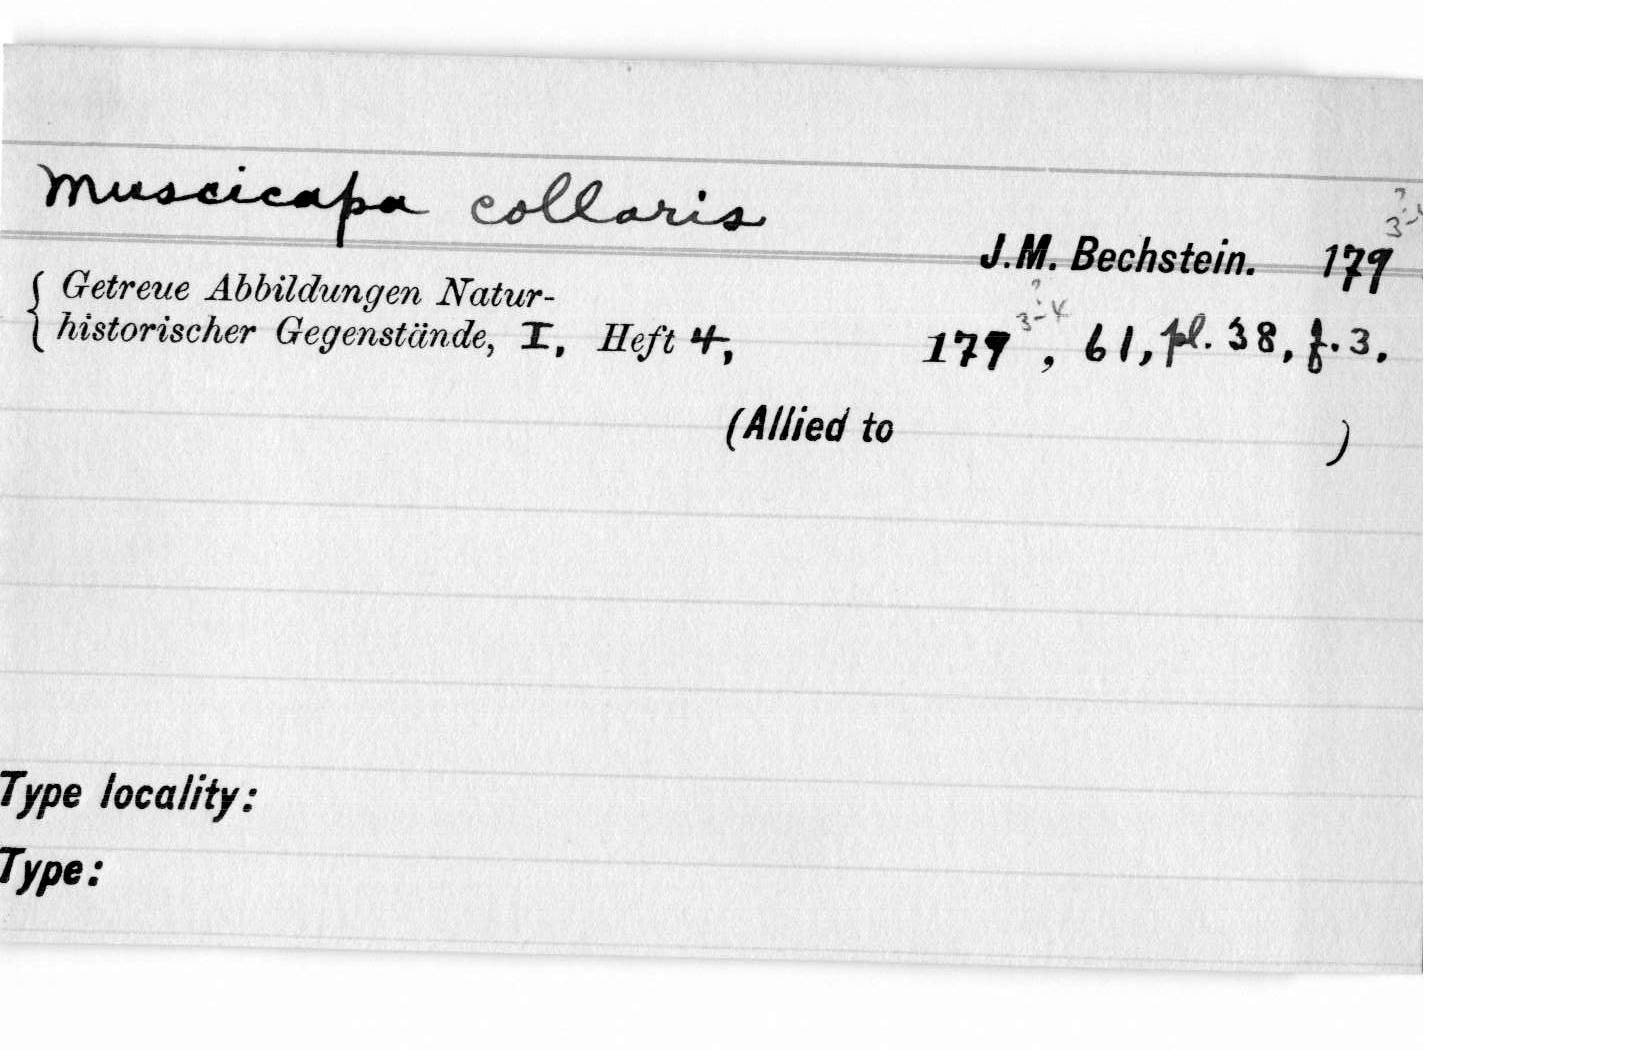 Muscicapa collaris
J.M. Bechstein. 179 3-4 ?
{ Getreue Abbildungen Natur-
historischer Gegenstände, I, Heft 4, 179 3-4 ?, 61, pl. 38, f. 3.
(Allied to )
Type locality:
Type: